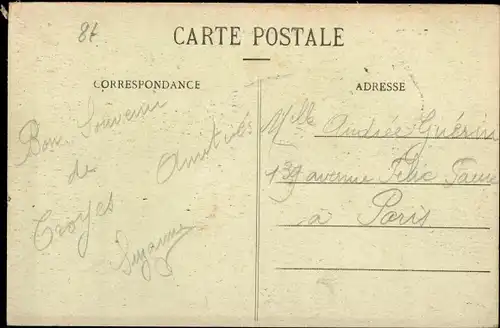 87
CARTE POSTALE
CORRESPONDANCE
ADRESSE
Bon Souvenir
de
Troyes
Amitiés
Suzanne
Mlle Andrée Guérin
139 avenue Félix Faure
à Paris